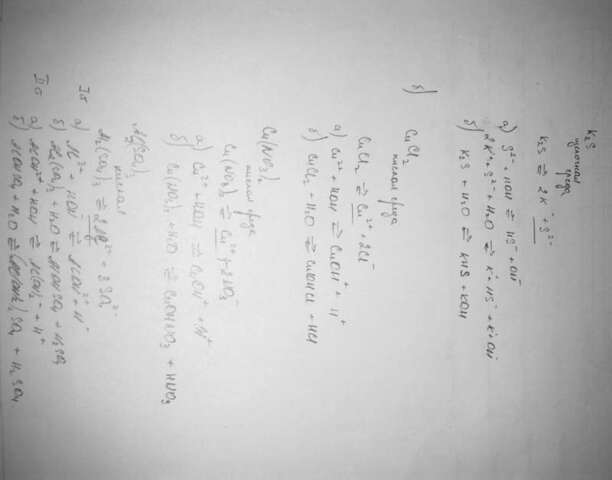 K₂S
щелочная
среда
K₂S ⇌ 2K⁺ + S²⁻
а) S²⁻ + HOH ⇌ HS⁻ + OH⁻
2K⁺ + S²⁻ + H₂O ⇌ K⁺ + HS⁻ + K⁺ + OH⁻
б) K₂S + H₂O ⇌ KHS + KOH
б)
CuCl₂
кислая среда
CuCl₂ ⇌ Cu²⁺ + 2Cl⁻
а) Cu²⁺ + HOH ⇌ CuOH⁺ + H⁺
б) CuCl₂ + H₂O ⇌ CuOHCl + HCl
Cu(NO₃)₂
кислая среда
Cu(NO₃)₂ ⇌ Cu²⁺ + 2NO₃⁻
а) Cu²⁺ + HOH ⇌ CuOH⁺ + H⁺
б) Cu(NO₃)₂ + H₂O ⇌ CuOHNO₃ + HNO₃
Al₂(SO₄)₃
кислая
Al₂(SO₄)₃ ⇌ 2Al³⁺ + 3SO₄²⁻
Iσ
а) Al³⁺ + HOH ⇌ AlOH²⁺ + H⁺
б) Al₂(SO₄)₃ + H₂O ⇌ AlOHSO₄ + H₂SO₄
IIσ
а) AlOH²⁺ + HOH ⇌ Al(OH)₂⁺ + H⁺
б) AlOHSO₄ + H₂O ⇌ (Al(OH)₂)₂SO₄ + H₂SO₄